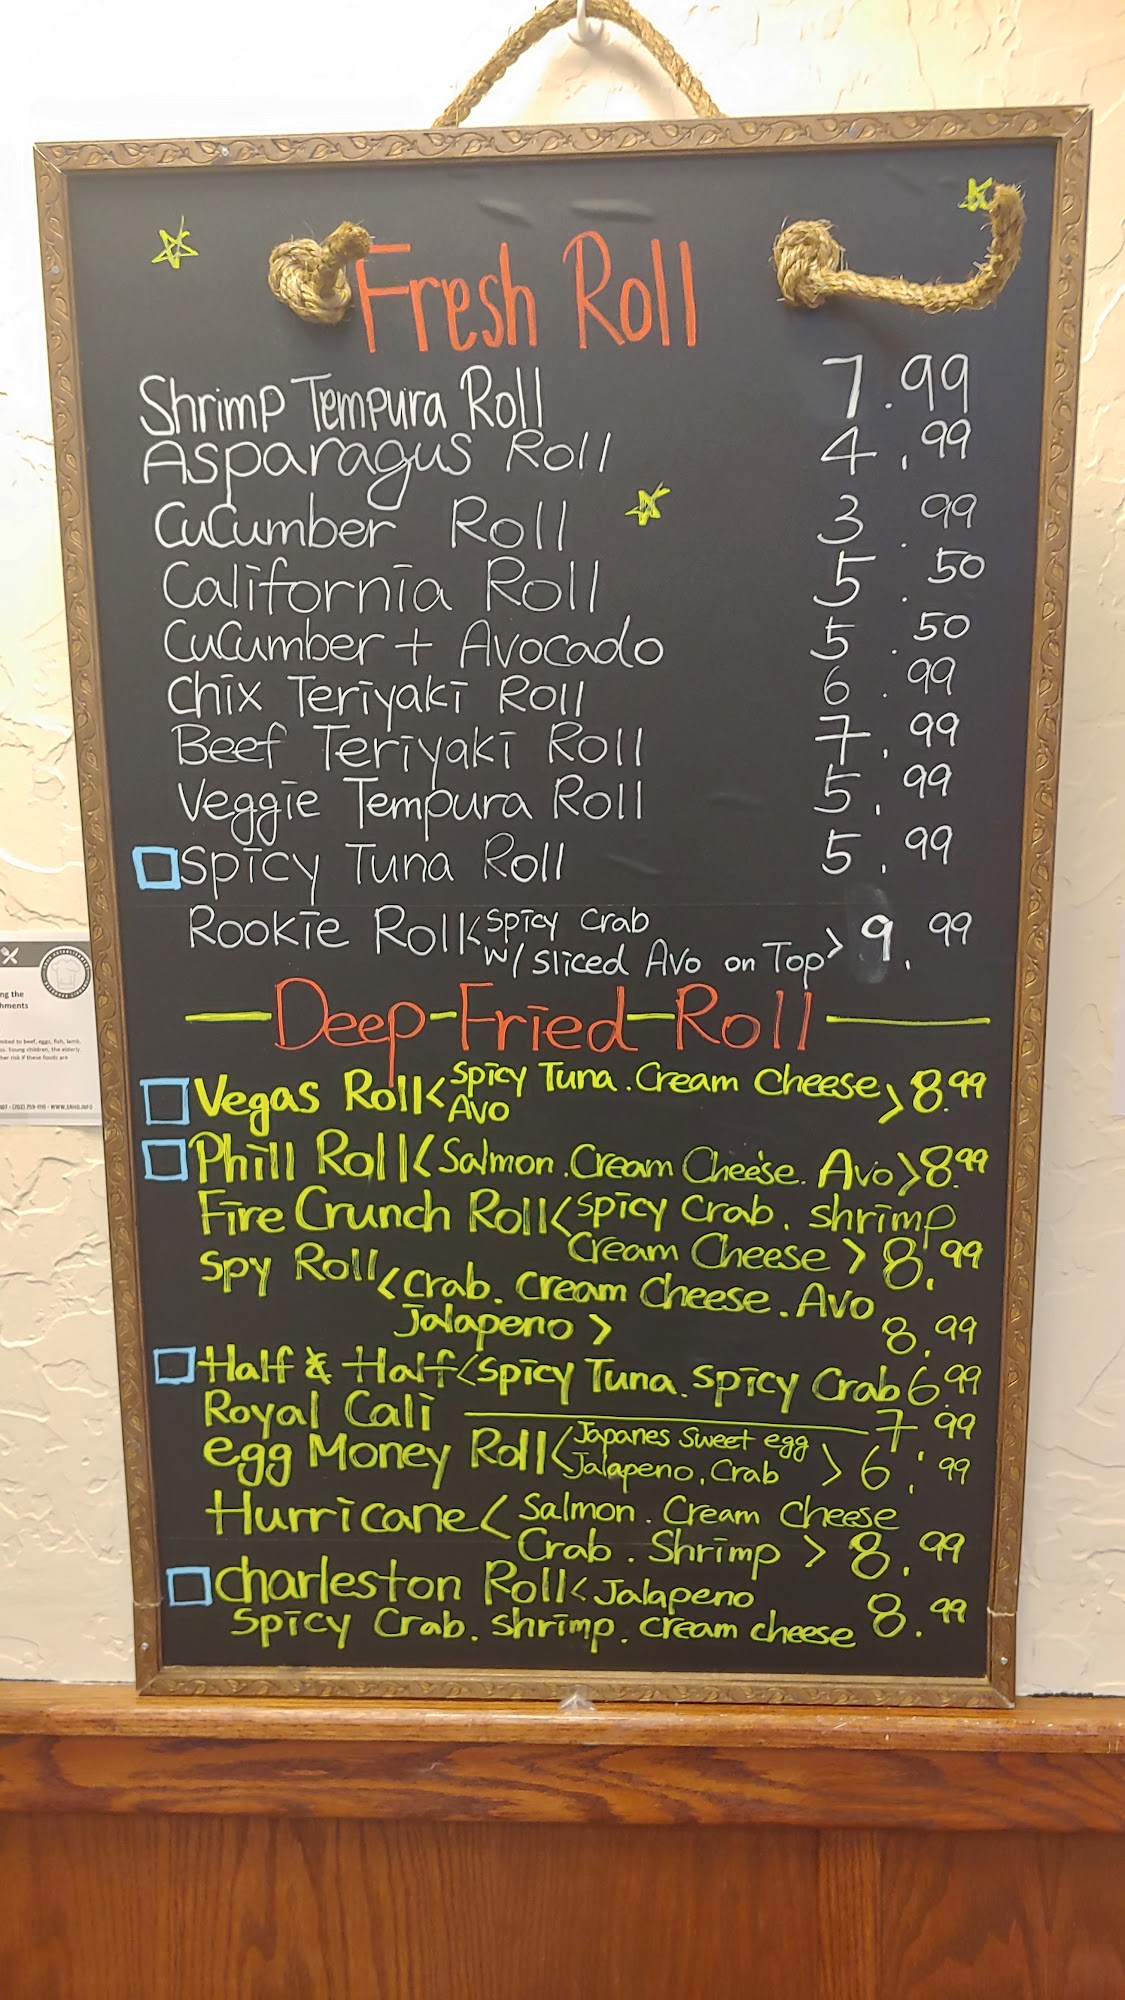 Fresh Roll
Shrimp Tempura Roll 7.99
Asparagus Roll 4.99
Cucumber Roll 3.99
California Roll 5.50
Cucumber + Avocado 5.50
Chix Teriyaki Roll 6.99
Beef Teriyaki Roll 7.99
Veggie Tempura Roll 5.99
Spicy Tuna Roll 5.99
Rookie Roll <Spicy Crab
w/ sliced Avo on Top> 9.99
Deep-Fried-Roll
Vegas Roll <Spicy Tuna. Cream Cheese
Avo> 8.99
Phill Roll <Salmon. Cream Cheese. Avo> 8.99
Fire Crunch Roll <Spicy Crab. shrimp
Cream Cheese> 8.99
Spy Roll <Crab. Cream Cheese. Avo
Jalapeno> 8.99
Half & Half <Spicy Tuna. Spicy Crab 6.99
Royal Cali 7.99
egg Money Roll <Japanes Sweet egg
Jalapeno, Crab> 6.99
Hurricane <Salmon. Cream Cheese
Crab. Shrimp> 8.99
Charleston Roll <Jalapeno
Spicy Crab. Shrimp. Cream cheese 8.99
ng the
hments
mited to beef, eggs, fish, lamb,
ss. Young children, the elderly
her risk if these foods are
107 - (702) 759-1110 - WWW.SNHD.INFO